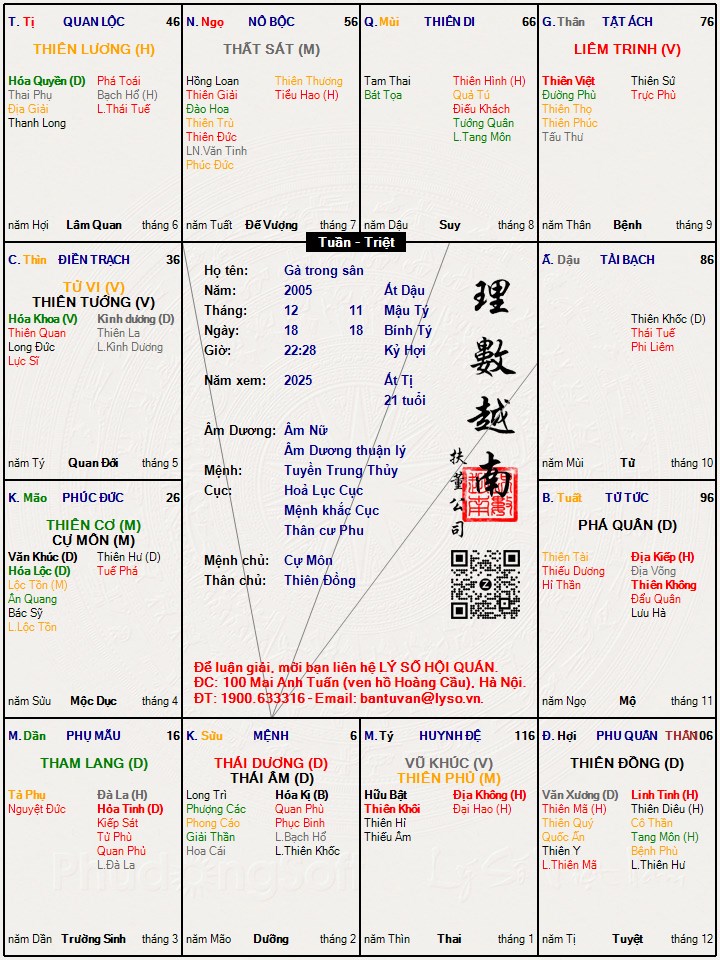 T. Tị QUAN LỘC 46
THIÊN LƯƠNG (H)
Hóa Quyền (D) Phá Toái
Thai Phụ Bạch Hổ (H)
Địa Giải L.Thái Tuế
Thanh Long
năm Hợi Lâm Quan tháng 6
N. Ngọ NÔ BỘC 56
THẤT SÁT (M)
Hồng Loan Thiên Thương
Thiên Giải Tiểu Hao (H)
Đào Hoa
Thiên Trù
Thiên Đức
LN.Văn Tinh
Phúc Đức
năm Tuất Đế Vượng tháng 7
Q. Mùi THIÊN DI 66
Tam Thai Thiên Hình (H)
Bát Tọa Quả Tú
Điếu Khách
Tướng Quân
L.Tang Môn
năm Dậu Suy tháng 8
G. Thân TẬT ÁCH 76
LIÊM TRINH (V)
Thiên Việt Thiên Sứ
Đường Phù Trực Phù
Thiên Thọ
Thiên Phúc
Tấu Thư
năm Thân Bệnh tháng 9
Tuần - Triệt
C. Thìn ĐIỀN TRẠCH 36
TỬ VI (V)
THIÊN TƯỚNG (V)
Hóa Khoa (V) Kình dương (D)
Thiên Quan Thiên La
Long Đức L.Kình Dương
Lực Sĩ
năm Tý Quan Đới tháng 5
Họ tên: Gà trong sân
Năm: 2005 Ất Dậu
Tháng: 12 11 Mậu Tý
Ngày: 18 18 Bính Tý
Giờ: 22:28 Kỷ Hợi
Năm xem: 2025 Ất Tị
21 tuổi
Âm Dương: Âm Nữ
Âm Dương thuận lý
Mệnh: Tuyền Trung Thủy
Cục: Hoả Lục Cục
Mệnh khắc Cục
Thân cư Phu
Mệnh chủ: Cự Môn
Thân chủ: Thiên Đồng
理數越南
扶董公司
Để luận giải, mời bạn liên hệ LÝ SỐ HỘI QUÁN.
ĐC: 100 Mai Anh Tuấn (ven hồ Hoàng Cầu), Hà Nội.
ĐT: 1900.633316 - Email: bantuvan@lyso.vn.
Ấ. Dậu TÀI BẠCH 86
Thiên Khốc (D)
Thái Tuế
Phi Liêm
năm Mùi Tử tháng 10
K. Mão PHÚC ĐỨC 26
THIÊN CƠ (M)
CỰ MÔN (M)
Văn Khúc (D) Thiên Hư (D)
Hóa Lộc (D) Tuế Phá
Lộc Tồn (M)
Ân Quang
Bác Sỹ
L.Lộc Tồn
năm Sửu Mộc Dục tháng 4
B. Tuất TỬ TỨC 96
PHÁ QUÂN (D)
Thiên Tài Địa Kiếp (H)
Thiếu Dương Địa Võng
Hỉ Thần Thiên Không
Đẩu Quân
Lưu Hà
năm Ngọ Mộ tháng 11
M. Dần PHỤ MẪU 16
THAM LANG (D)
Tả Phụ Đà La (H)
Nguyệt Đức Hỏa Tinh (D)
Kiếp Sát
Tử Phù
Quan Phủ
L.Đà La
năm Dần Trường Sinh tháng 3
K. Sửu MỆNH 6
THÁI DƯƠNG (D)
THÁI ÂM (D)
Long Trì Hóa Kị (B)
Phượng Các Quan Phù
Phong Cáo Phục Binh
Giải Thần L.Bạch Hổ
Hoa Cái L.Thiên Khốc
năm Mão Dưỡng tháng 2
M. Tý HUYNH ĐỆ 116
VŨ KHÚC (V)
THIÊN PHỦ (M)
Hữu Bật Địa Không (H)
Thiên Khôi Đại Hao (H)
Thiên Hỉ
Thiếu Âm
năm Thìn Thai tháng 1
Đ. Hợi PHU QUÂN THÂN 106
THIÊN ĐỒNG (D)
Văn Xương (D) Linh Tinh (H)
Thiên Mã (H) Thiên Diêu (H)
Thiên Quý Cô Thần
Quốc Ấn Tang Môn (H)
Thiên Y Bệnh Phù
L.Thiên Mã L.Thiên Hư
năm Tị Tuyệt tháng 12